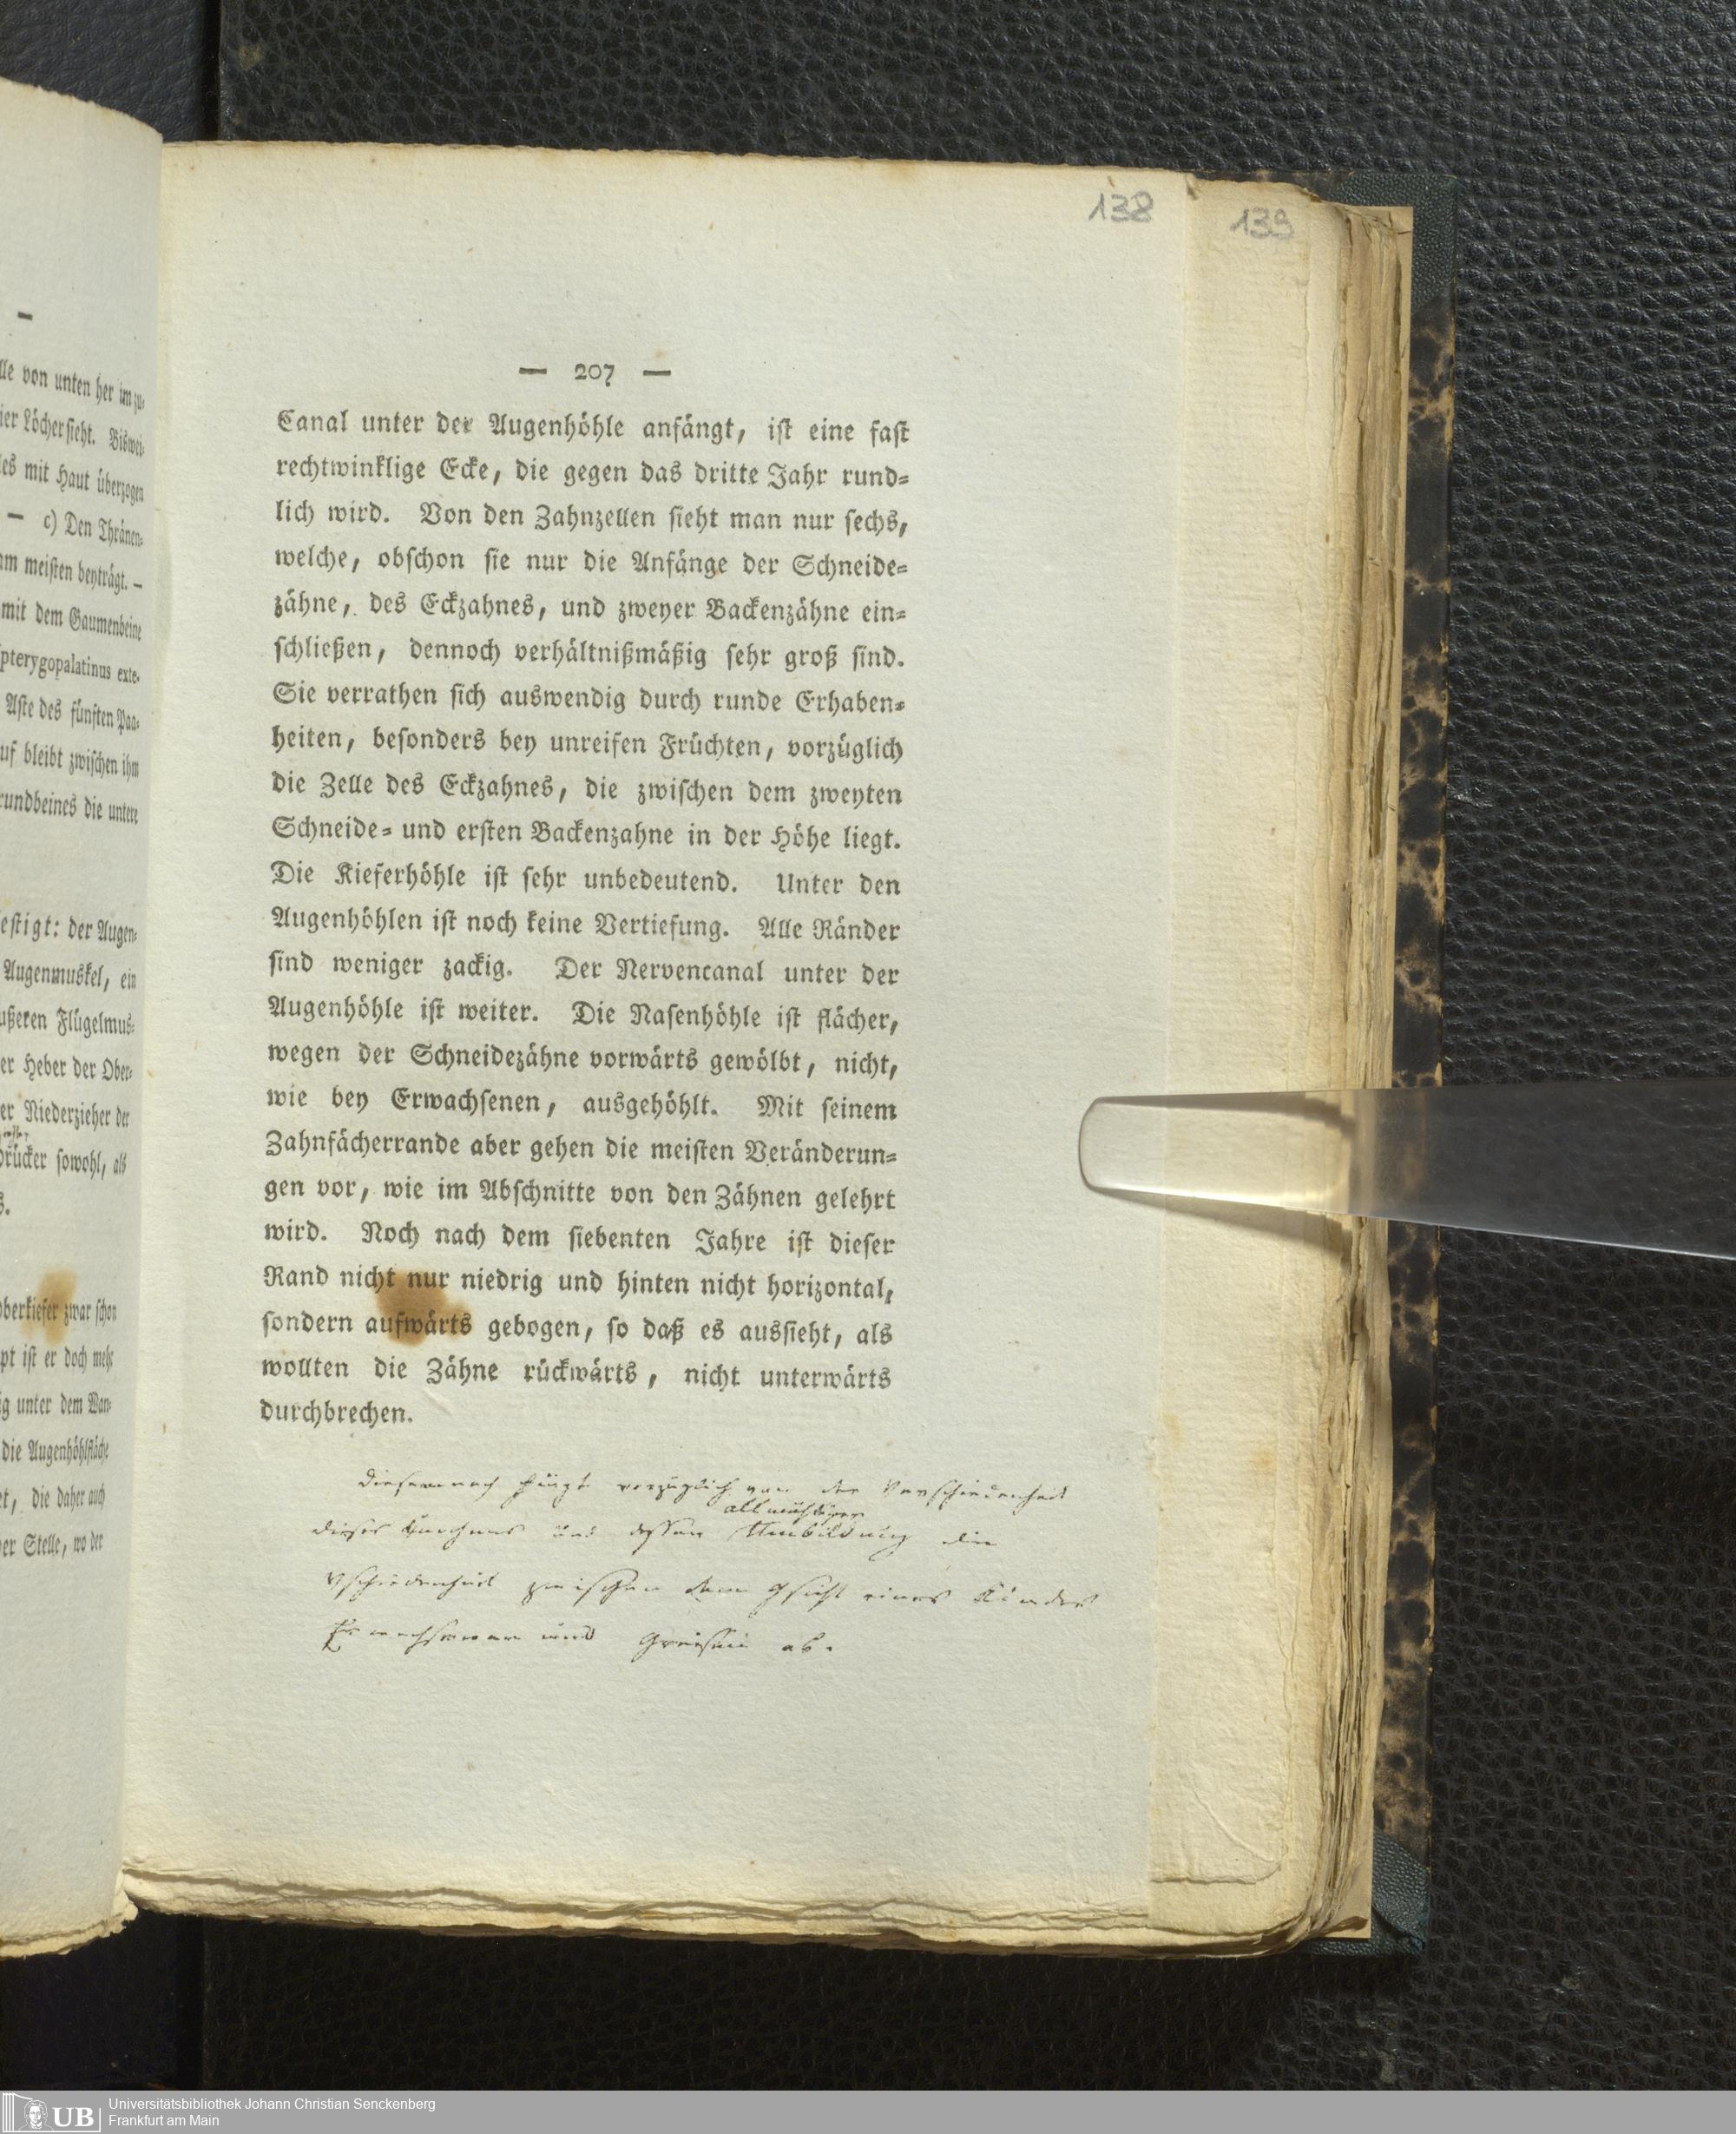 lle von unten her im zu-
ier Löcher sieht. Biswei-
les mit Haut überzogen
— c) Den Thränen-
am meisten beyträgt. —
mit dem Gaumenbeine
pterygopalatinus exte-
Aste des fünften Paa-
uf bleibt zwischen ihm
rundbeines die untere
estigt: der Augen-
Augenmuskel, ein
ußeren Flügelmus-
er Heber der Ober-
er Niederzieher der
drücker sowohl, als
s.
Oberkiefer zwar schon
pt ist er doch mehr
ig unter dem Wan-
die Augenhöhlfläche
et, die daher auch
er Stelle, wo der
138
139
— 207 —
Canal unter der Augenhöhle anfängt, ist eine fast
rechtwinklige Ecke, die gegen das dritte Jahr rund-
lich wird. Von den Zahnzellen sieht man nur sechs,
welche, obschon sie nur die Anfänge der Schneide-
zähne, des Eckzahnes, und zweyer Backenzähne ein-
schließen, dennoch verhältnißmäßig sehr groß sind.
Sie verrathen sich auswendig durch runde Erhaben-
heiten, besonders bey unreifen Früchten, vorzüglich
die Zelle des Eckzahnes, die zwischen dem zweyten
Schneide- und ersten Backenzahne in der Höhe liegt.
Die Kieferhöhle ist sehr unbedeutend. Unter den
Augenhöhlen ist noch keine Vertiefung. Alle Ränder
sind weniger zackig. Der Nervencanal unter der
Augenhöhle ist weiter. Die Nasenhöhle ist flächer,
wegen der Schneidezähne vorwärts gewölbt, nicht,
wie bey Erwachsenen, ausgehöhlt. Mit seinem
Zahnfächerrande aber gehen die meisten Veränderun-
gen vor, wie im Abschnitte von den Zähnen gelehrt
wird. Noch nach dem siebenten Jahre ist dieser
Rand nicht nur niedrig und hinten nicht horizontal,
sondern aufwärts gebogen, so daß es aussieht, als
wollten die Zähne rückwärts, nicht unterwärts
durchbrechen.
Diesemnach hängt vorzüglich von der Verschiedenheit
allmähligen
dieses Knochens und dessen Umbildung die
Vschiedenheit zwischen dem Gsicht eines Kindes
Erwachsenen und Greisen ab.
Universitätsbibliothek Johann Christian Senckenberg
Frankfurt am Main
UB